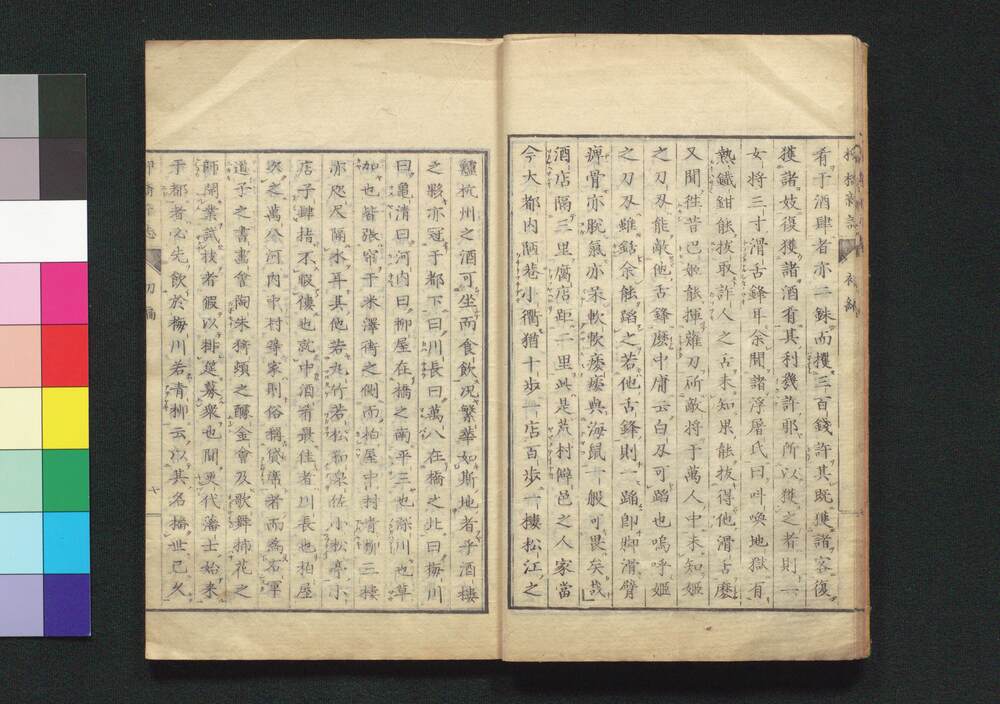 看于酒肆者亦二銖而攫三百錢許其既獲諸客復
獲諸妓復獲諸酒看其利幾許耶所以獲之者則一
女將三寸滑舌鋒耳余聞諸浮屠氏曰叫喚地獄有
熱鐵鉗能拔取詐人之舌未知果能拔得他滑舌麼
又聞徃昔巴姬能揮薙刀所敵将于萬人中未知姬
之刀刄能敵他舌鋒麼中庸云白刄可蹈也嗚呼姬
之刀刄雖銛余能蹈之若他舌鋒則一蹈即脚滑臂
痺骨亦脫氣亦呆軟軟痿痿與海鼠一般可畏矣哉
酒店隔三里腐店距二里此是荒村僻邑之人家當
今大都内陋巷小衢猶十歩一店百歩一樓松江之
鱸杭州之酒可坐而食飲况繁華如斯地者乎酒樓
之夥亦冠于都下曰川長曰萬八在橋之北曰梅川
曰亀清曰河内曰柳屋在橋之南平三也深川也草
加也皆張帘于米澤街之側而柏屋中村青柳三樓
亦咫尺隔水耳其他若丸竹若松和泉佐小松亭小
店子肆揩不暇僂也就中酒肴最佳者川長也柏屋
次之萬八河内中村等家則俗稱貸席者而為名軍
道子之書畫會陶朱猗頓之醵金會及歌舞插花之
師開業試技者假以排筵募衆也間更代藩士始来
于都者必先飲於梅川若青柳云以其名播世已久